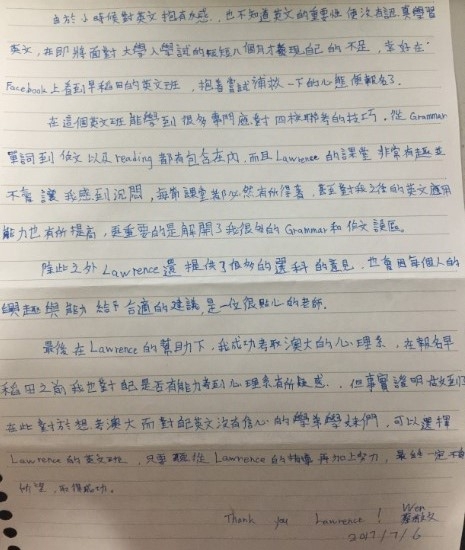 由於小時候對英文抱有反感，也不知道英文的重要性便沒有認真學習
英文，在即將面對大學入學試的短短几個月才發現自己的不足，幸好在
Facebook上看到早稻田的英文班，抱着嘗試補救一下的心態便報名了.
在這個英文班能學到很多專門應對四校聯考的技巧。從Grammar
單詞到作文以及reading都有包含在內，而且Lawrence的課堂非常有趣並
不會讓我感到沉悶，每節課堂都必然有所得著，甚至對我之後的英文應用
能力也有所提高，更重要的是解開了我很多的Grammar和作文誤區。
除此之外Lawrence還提供了很好的選科的意見，也會因每個人的
興趣與能力給予合適的建議，是一位很貼心的老師.
最後在Lawrence的幫助下，我成功考取澳大的心理系，在報名早
稻田之前我也對自己是否有能力考到心理系有所疑惑，但事實證明我做到了
在此對於想考澳大而對自己英文沒有信心的學弟學妹們，可以選擇
Lawrence的英文班，只要聽從Lawrence的指導再加上努力，最終一定不負
所望，取得成功。
Thank you Lawrence！ Wen
2017/7/6